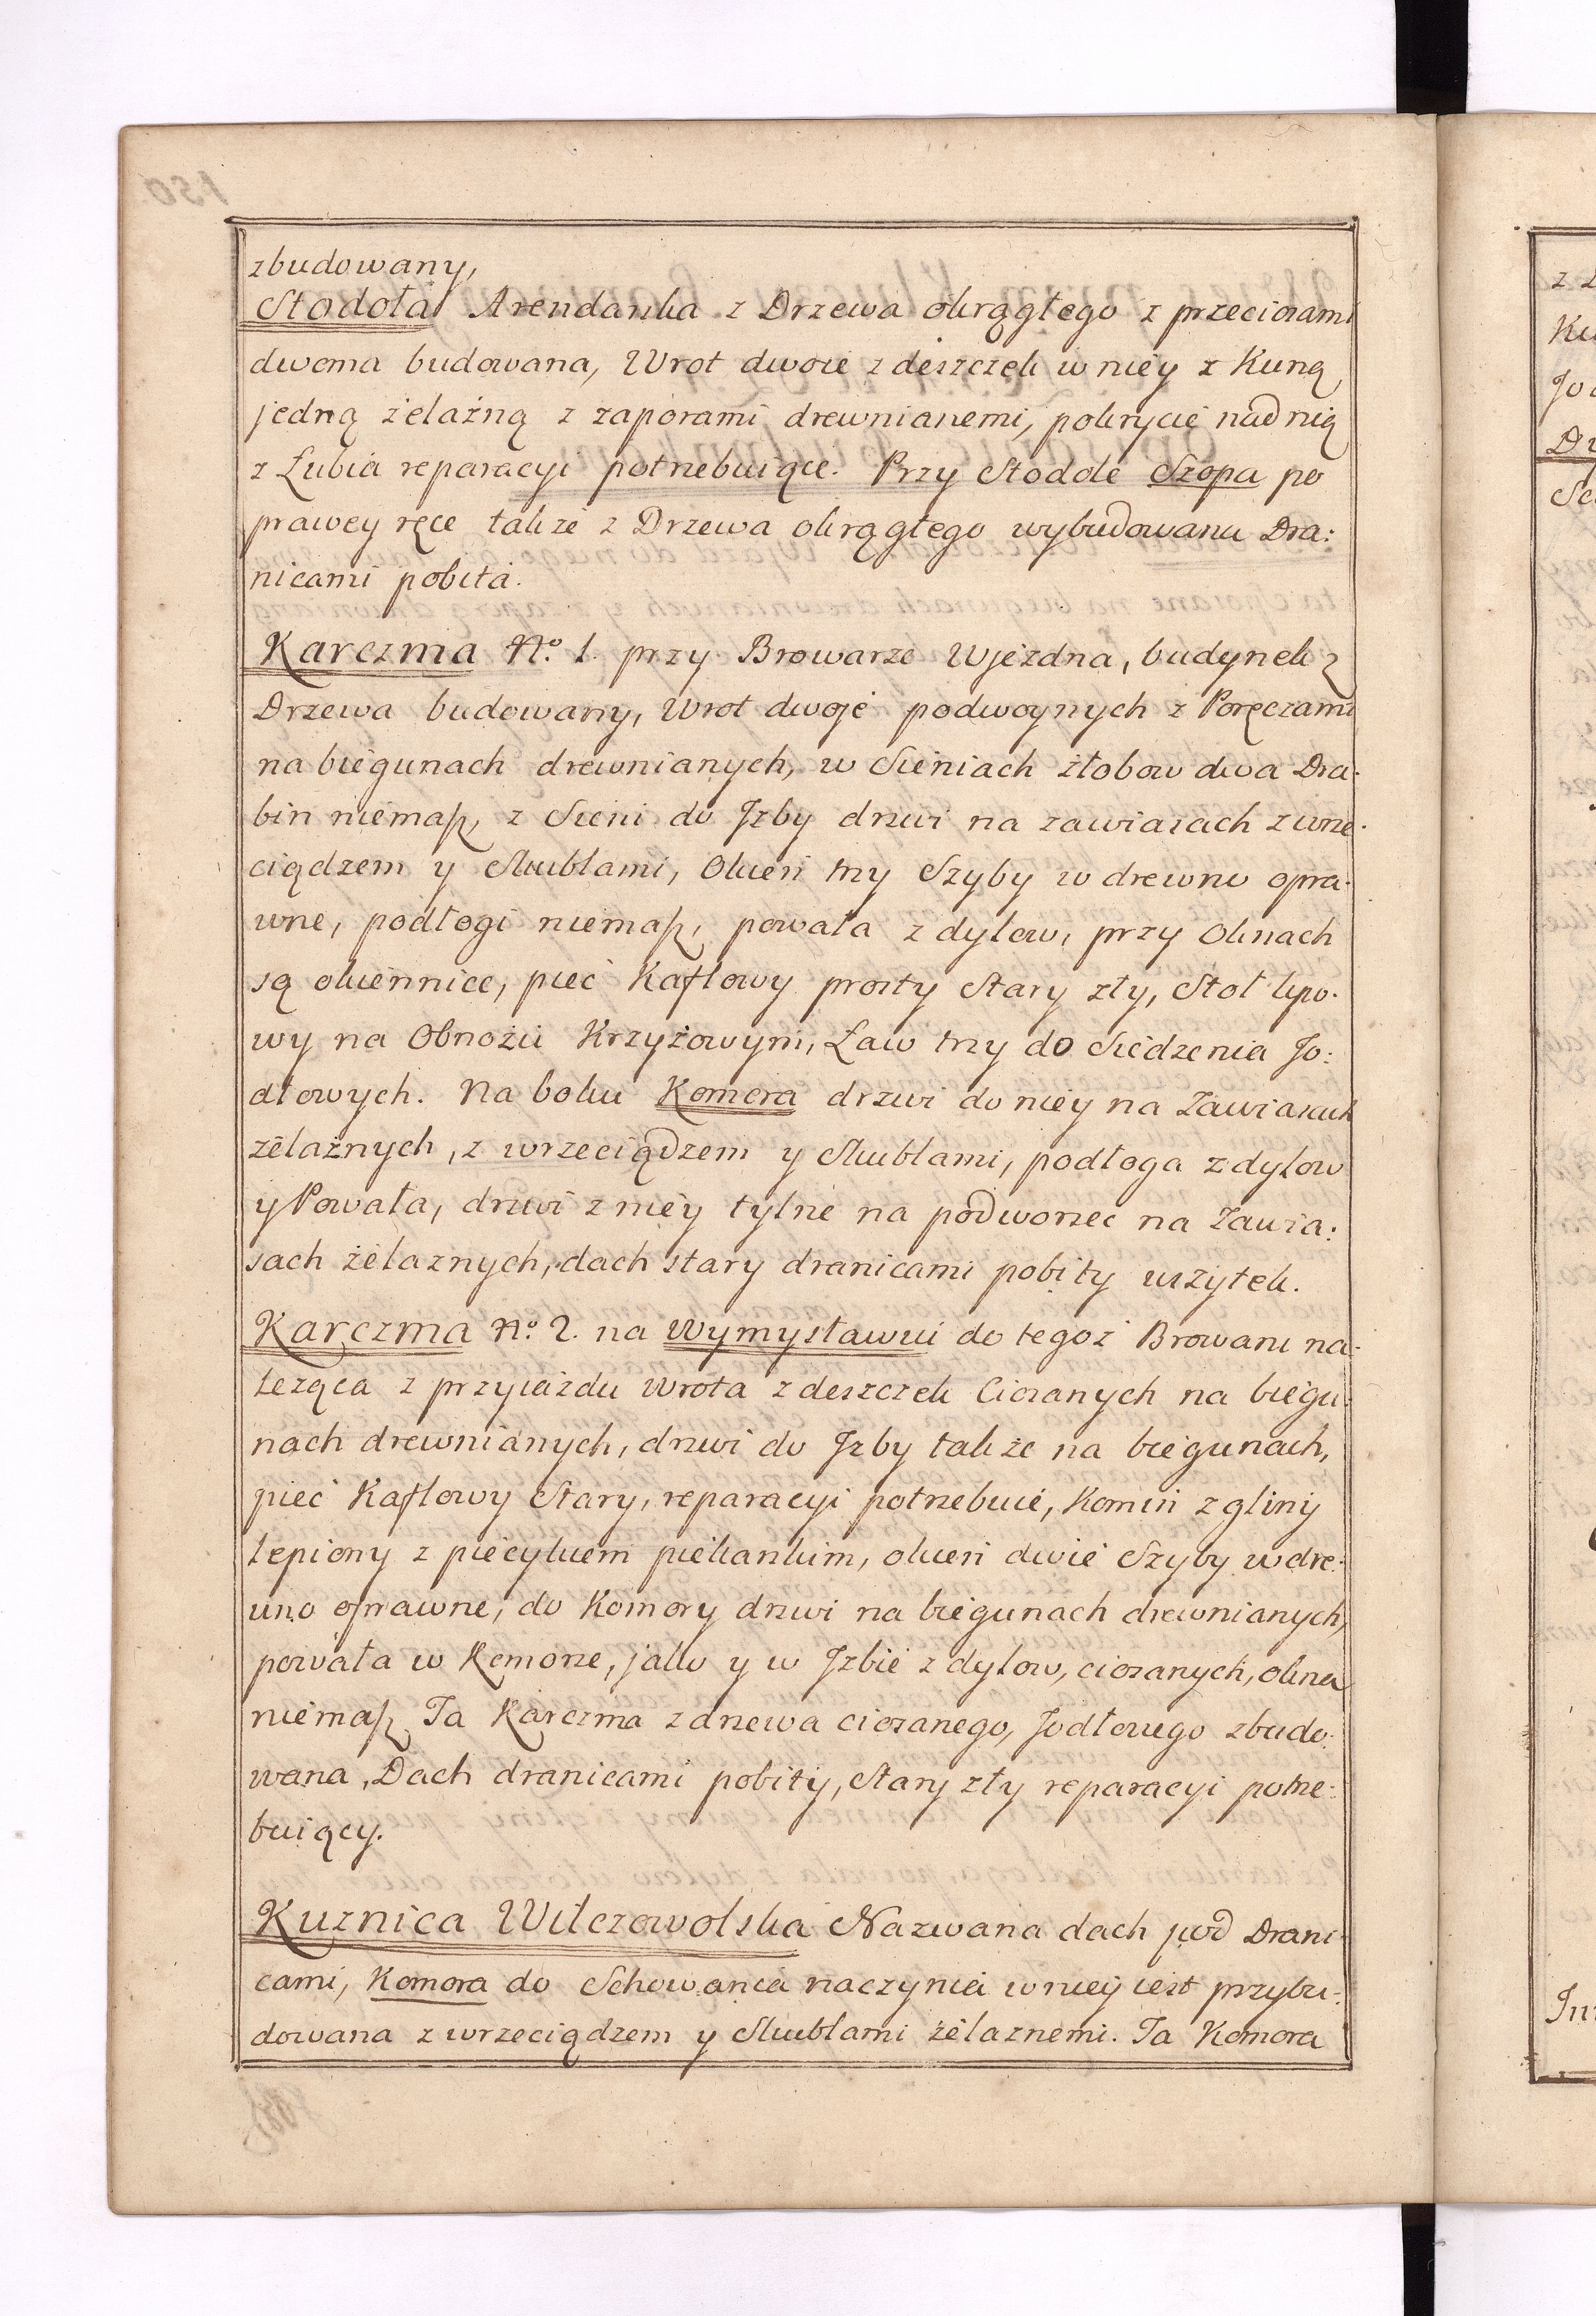 zbudowany,
Stodoła Arendarska z Drzewa okrągłego z przeciosami
dwoma budowana, Wrot dwoie z deszczek w niey z Kuną
jedną żelazną z zaporami drewnianemi, pokrycie nad nią
z Łubia reparacyi potrzebuiące. Przy Stodole Szopa po
prawey ręce takze z Drzewa okrągłego wybudowana Dra:
nicami pobita.
Karczma No. 1. przy Browarze Wjezdna, budynek z
Drzewa budowany, Wrot dwoje podwoynych z Poręczami
na biegunach drewnianych, w Sieniach żłobow dwa Dra:
bin niemasz, z Sieni do Izby drzwi na zawiasach z wrze:
ciądzem y Skublami, Okien trzy Szyby w drewno opra:
wne, podłogi niemasz, powała z dylow, przy Oknach
są okiennice, piec Kaflowy prosty Stary zły, Stoł lipo:
wy na Obnożu Krzyżowym, Ław trzy do Siedzenia Jo:
dłowych. Na boku Komora drzwi do niey na Zawiasach
żelaznych, z wrzeciądzem y Skublami, podłoga z dylow
y Powała, drzwi z niey tylne na podworzec na Zawia:
sach żelaznych, dach stary dranicami pobity wszytek.
Karczma No. 2. na Wymysławiu do tegoż Browaru na:
leząca z przyiazdu wrota z deszczek Ciosanych na biegu:
nach drewnianych, drzwi do Izby także na biegunach,
piec Kaflowy Stary, reparacyi potrzebuie, Komin z gliny
lepiony z piecykiem piekarskim, okien dwie Szyby w dre:
wno oprawne, do Komory drzwi na biegunach drewnianych,
powała w Komorze, jako y w Izbie z dylow, ciosanych, okna
niemasz Ta Karczma z drzewa ciosanego, Jodłowego zbudo:
wana, Dach dranicami pobity, Stary zły reparacyi potrze:
buiący.
Kuznica Wilczowolska Nazwana dach pod Drani:
cami, Komora do Schowania naczynia w niey iest przybu:
dowana z wrzeciądzem y Skublami żelaznemi. Ta Komora